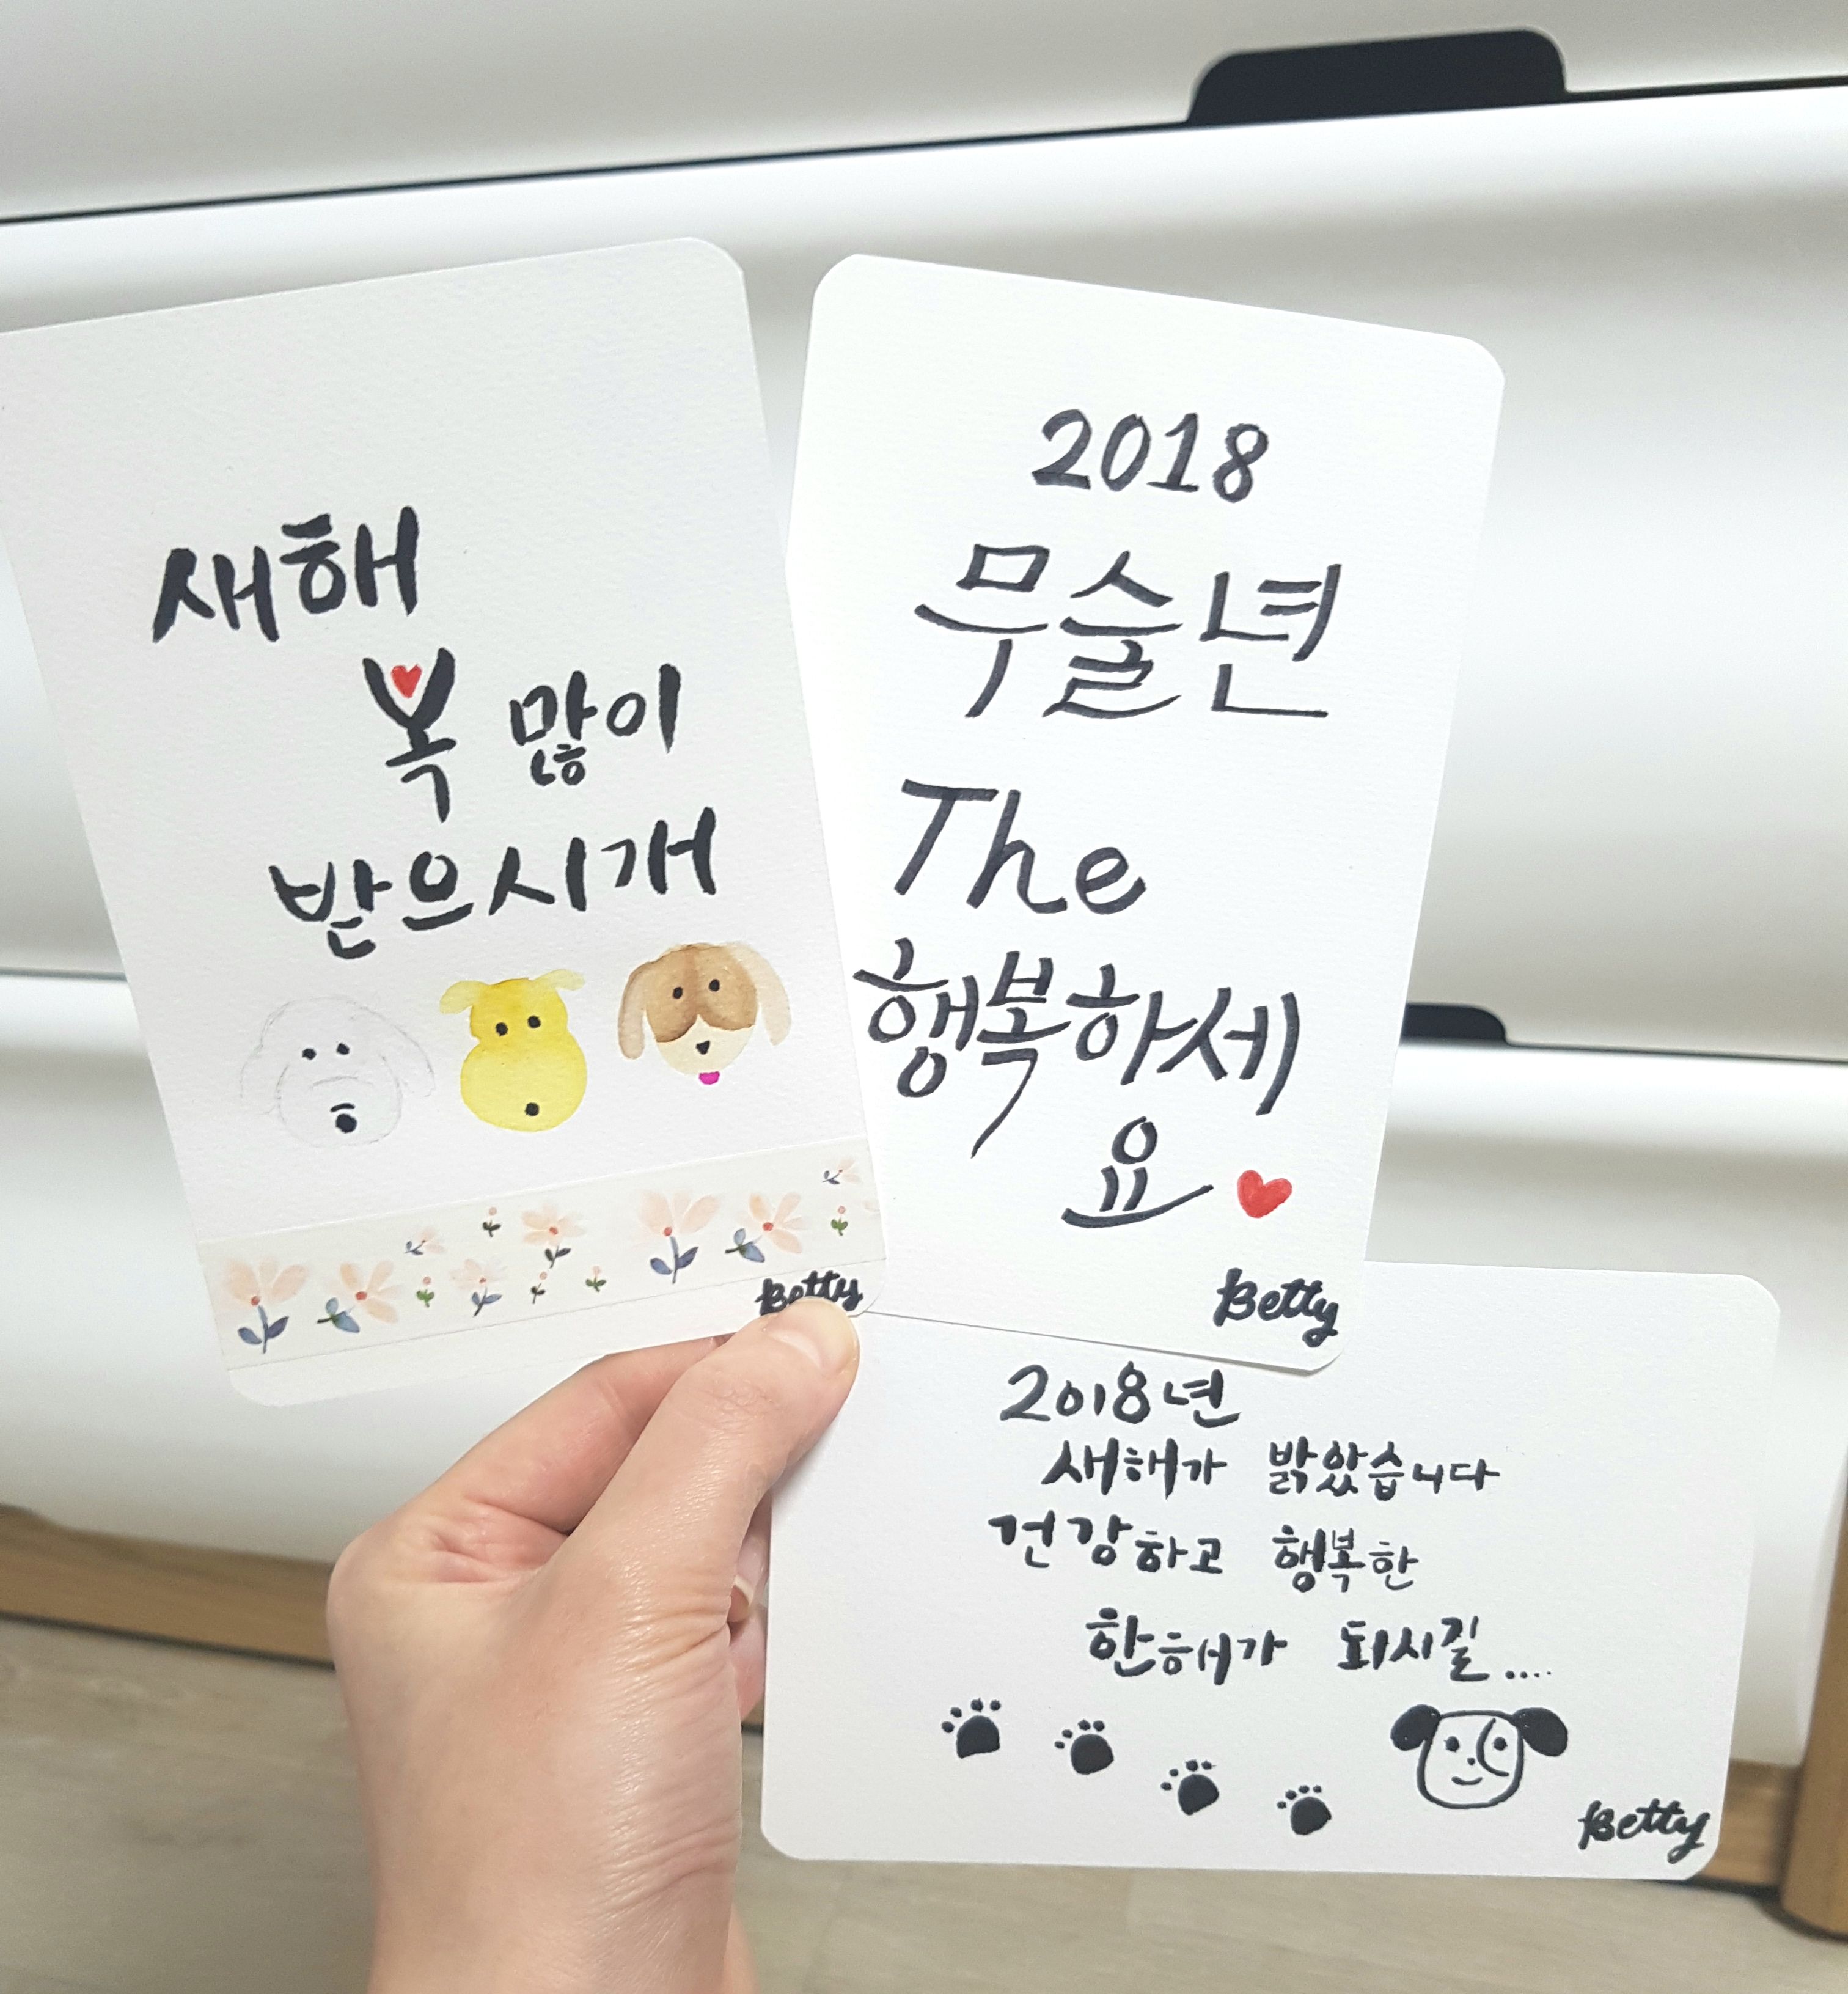 새해
복 많이
받으시개
Betty
2018
무술년
The
행복하세
요
Betty
2018년
새해가 밝았습니다
건강하고 행복한
한해가 되시길....
Betty